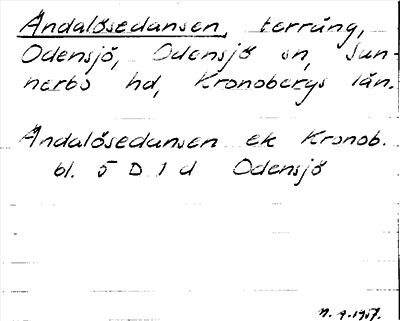 Ändalösedansen, terräng,
Odensjö, Odensjö sn, Sun-
nerbo hd, Kronobergs län.
Ändalösedansen ek Kronob.
bl. 5 D 1 d Odensjö